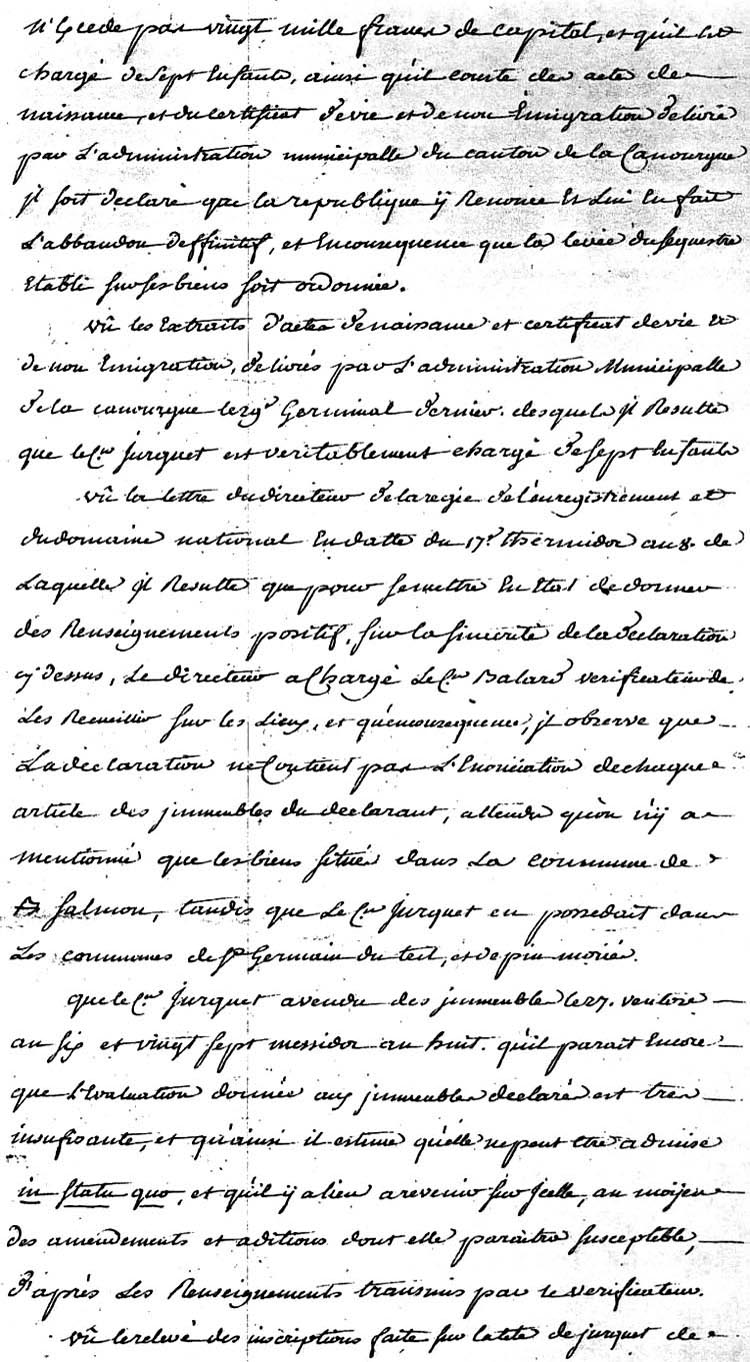 n'Excede pas vingt mille francs de capital, et qu'il est
chargé de sept Enfants, ainsi qu'il conste des actes de
naissance, et du certificat de vie et de non Émigration délivré
par L'administration municipalle du canton de la Canourgue
jl soit declaré que la republique ÿ Renonce Et Lui En fait
L'abbandon deffinitif, et En consequence que la levée du sequestre
Etabli sur ses biens soit ordonnée.
vû les Extraits d'actes de naissance et certificat de vie et
de non Emigration, délivrés par L'administration Municipalle
de la canourgue le 29e Germinal dernier. desquels jl Resulte
que le Cen jurquet est veritablement chargé de sept Enfants
vû la lettre du directeur de la regie de l'enregistrement et
du domaine national En datte du 17e thermidor an 8. de
Laquelle jl Resulte que pour se mettre En Etat de donner
des Renseignements positifs, sur la sincerité de la declaration
cy dessus, Le directeur a Chargé Le Cen Balard verificateur de
Les Recueillir sur les Lieux, et qu'en consequence, jl observe que
La declaration ne Contient pas L'Enonciation de chaque
article des jmmeubles du declarant, attendu qu'on n'ÿ a
mentionné que les biens situés dans La commune de
salmon, tandis que Le Cen jurquet en possedait dans
Les communes de St Germain du teil, et de pin moriés.
que le Cen jurquet a vendu des jmmeubles le 27. ventose
an six et vingt sept messidor an huit. qu'il parait Encore
que L'Evaluation donnée aux jmmeubles declarés est tres
insufisante, et qu'ainsi il estime qu'elle ne peut etre admise
in statu quo, et qu'il ÿ a lieu a revenir sur jcelle, au moÿen
des amendements et aditions dont elle paraitra susceptible,
d'aprés Les Renseignements transmis par le verificateur.
vû le relevé des inscriptions faite sur la tete de jurquet de